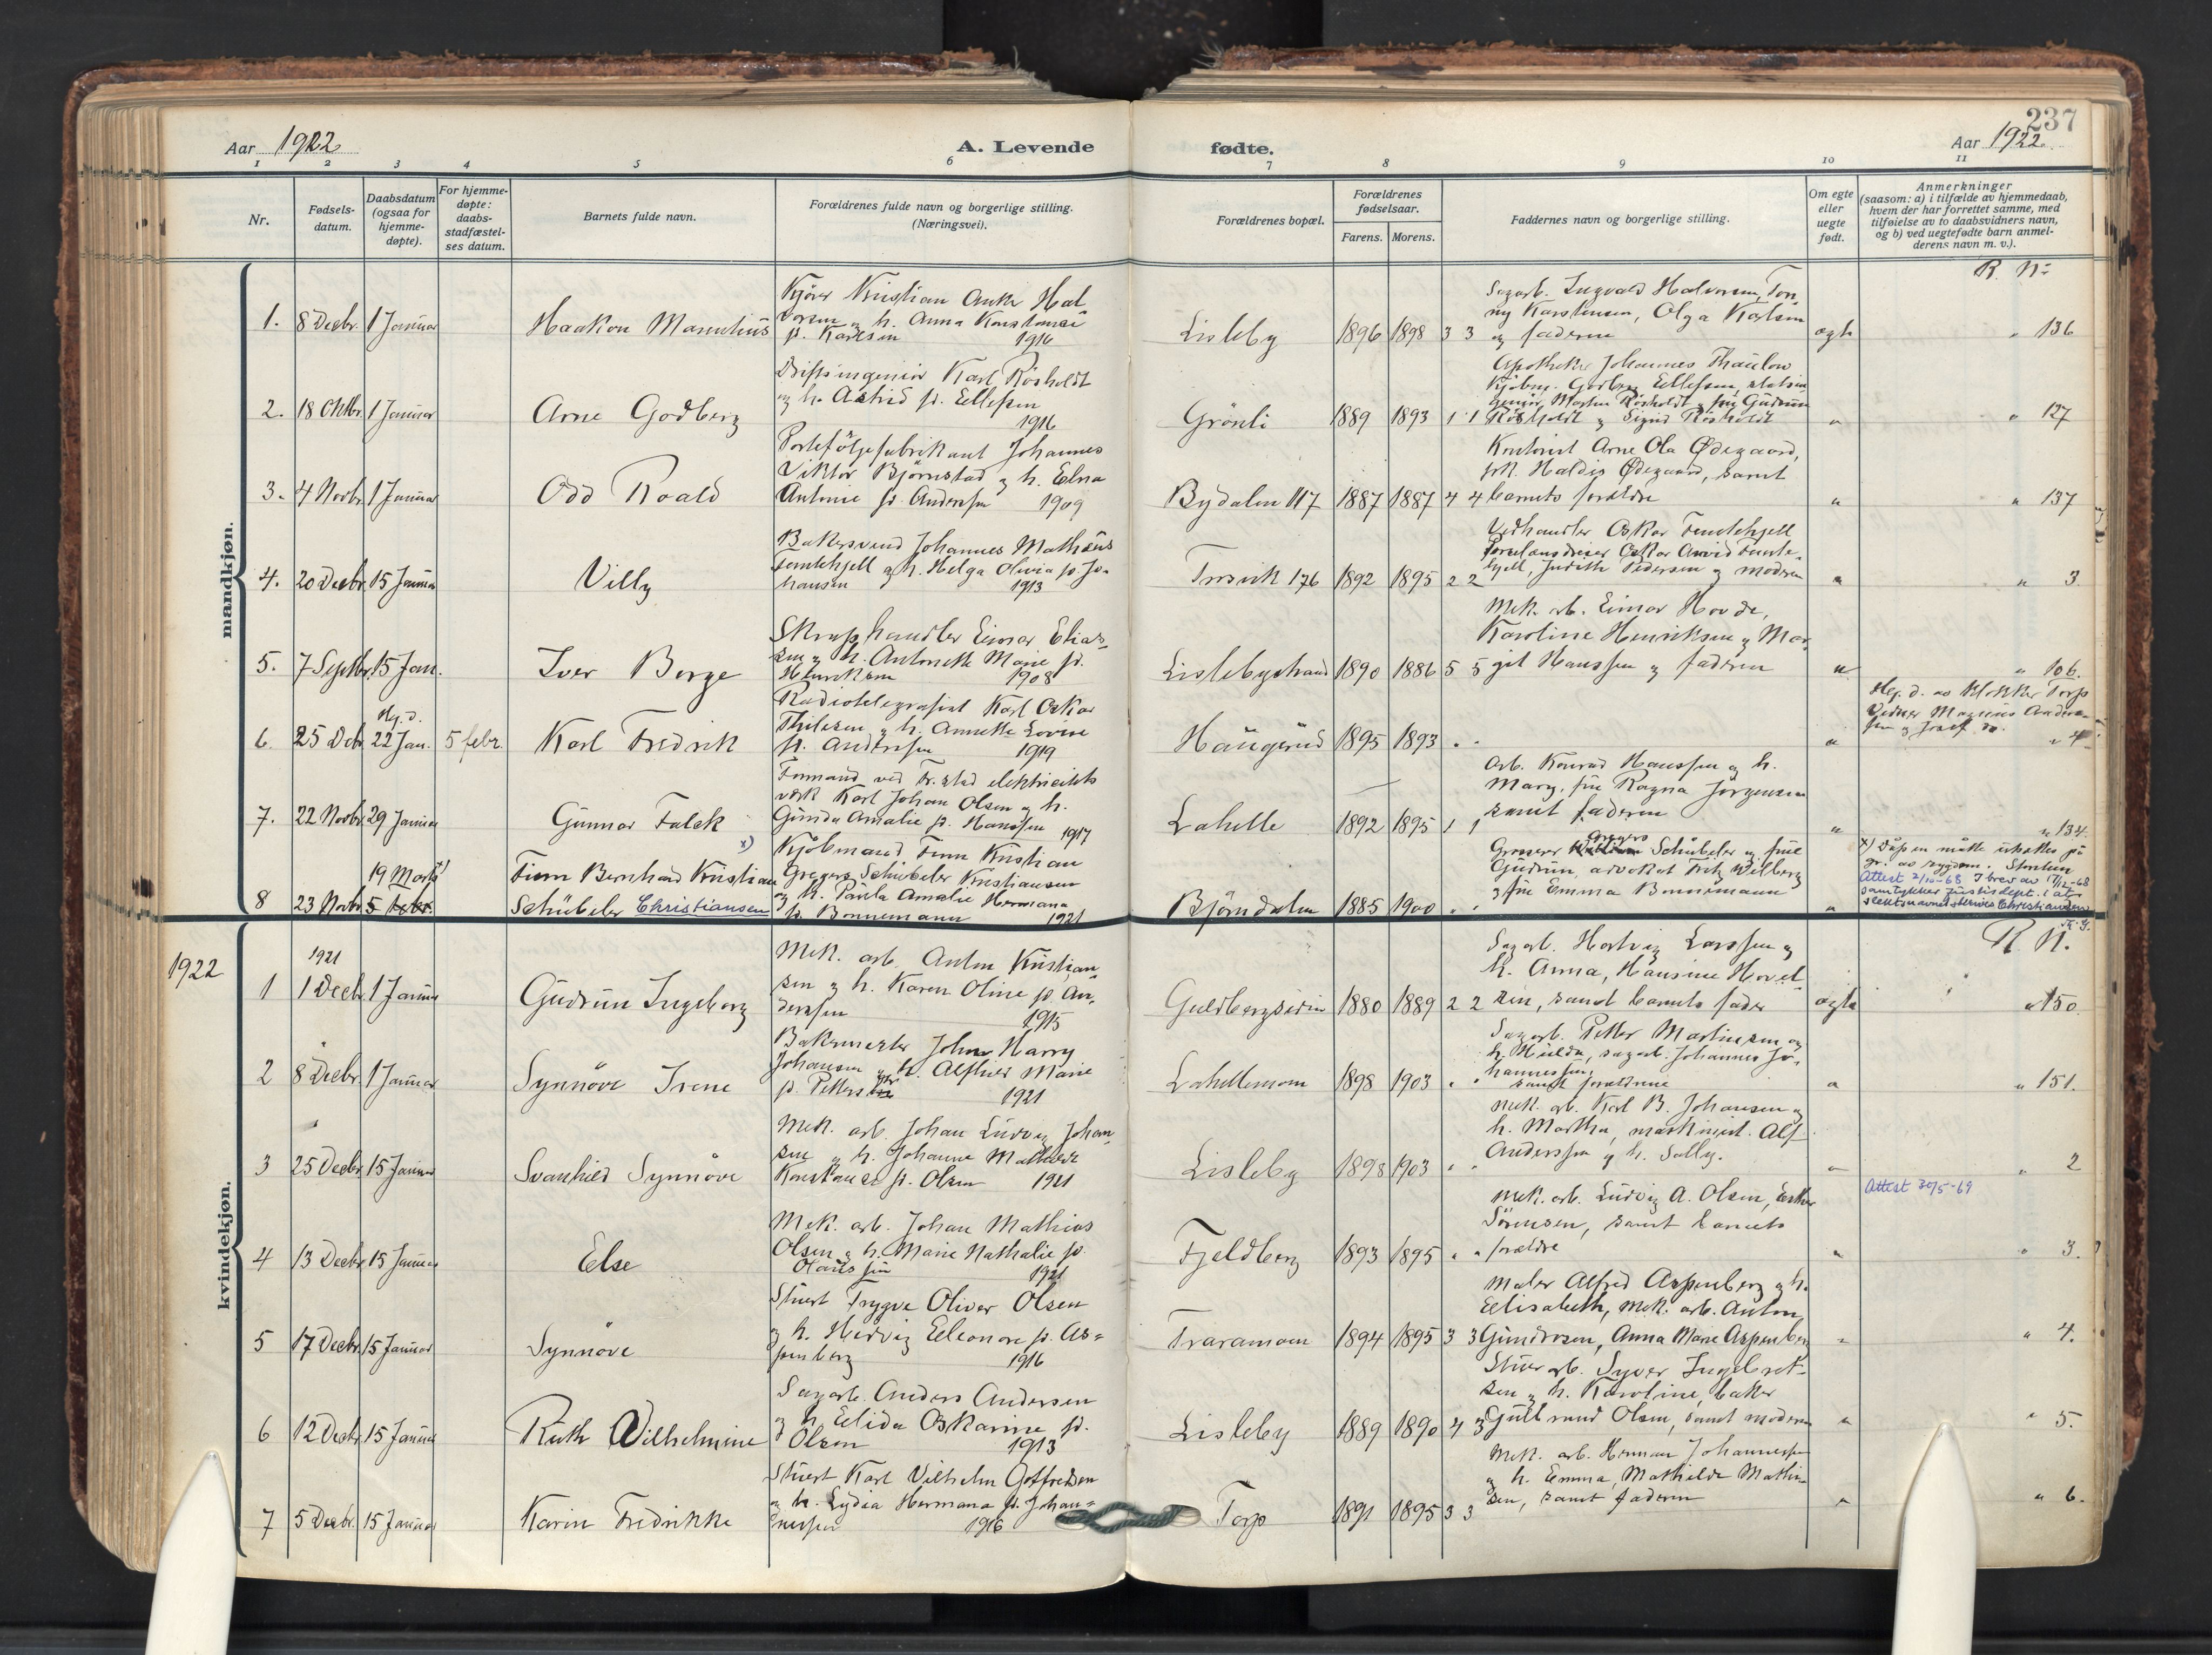 237
Aar 1922
A. Levende
fødte.
Aar 1922.
1 2 3 4 5 6 7 8 9 10 11
Nr.
Fødsels-
datum.
Daabsdatum
(ogsaa for
hjemme-
døpte).
For hjemme-
døpte:
daabs-
stadfæstel-
ses datum.
Barnets fulde navn.
Forældrenes fulde navn og borgerlige stilling.
(Næringsvei).
Forældrenes bopæl.
Forældrenes
fødselsaar.
Farens. Morens.
Faddernes navn og borgerlige stilling.
Om egte
eller
uegte
født.
Anmerkninger
(saasom: a) i tilfælde av hjemmedaab,
hvem der har forrettet samme, med
tilføielse av to daabsvidners navn,
og b) ved uegtefødte barn anmel-
derens navn m. v.).
mandkjøn.
R. Nr
1. 8 Decbr. 1 Januar
Haakon Marentius
Kjører Kristian Anker Hal
vorsen og h. Anna Konstanse
f. Karlsen 1916
Lisleby 1896 1898 3 3
Sagarb. Ingvald Halvorsen, Tor
ny Karstensen, Olga Karlsen
og faderen
egte
" 136
2. 18 Oktbr. 1 Januar
Arne Godberg
Driftsingeniør Karl Rösholdt
og h. Astrid f. Ellefsen
1916
Grönli 1889 1893 1 1
Apotheker Johannes Thaulow
Kjöbm. Godberg Ellefsen, stasin
geniör Martin Rösholdt og frü Güdrün
Rösholdt og Sigrid Rösholdt
" " 127
3. 4 Novbr. 1 Januar
Odd Roald
Porteföljefabrikant Johannes
Viktor Björnstad og h. Elna
Antonie f. Andersen 1909
Bydalen 117 1887 1887 4 4
Kontorist Arne Ola Ødegaard,
frk. Haldis Ødegaard, samt
barnets forældre
" " 137
4. 20 Decbr. 15 Januar
Villy
Bakersvend Johannes Mathæus
Femtehjell og h. Helga Olivia f. Jo-
hansen 1913
Trosvik 176 1892 1895 2 2
Vedhandler Oskar Femtehjell
Porselænsdreier Oskar Arvid Femte-
hjell, Judith Pedersen og moderen
" " 3.
5. 7 Septbr. 15 Jan.
Iver Borge
Skraphandler Einar Elias-
sen og h. Antonette Marie f.
Henriksen 1908
Lislebystrand 1890 1886 5 5
Mek. arb. Einar Hovde,
Karoline Henriksen og Mar
git Hanssen og faderen
" " 106.
6. 25 Dcbr. Hj. d. 22 Jan. 5 febr.
Karl Fredrik
Radiotelegrafist Karl Oskar
Thilesen og h. Annette Lovise
f. Andersen 1919
Haugerud 1895 1893 " "
"
Hj. d. av klokker Torp
Vidner Magnus Ander-
sen og Josef do. " 4
7. 22 Novbr. 29 Januar
Günnar Falck
Formand ved Fr.stad elektricitets
verk Karl Johan Olsen og h.
Günda Amalie f. Hanssen 1917
Lahelle 1892 1895 1 1
Arb. Konrad Hanssen og h.
Mary, frü Ragna Jörgensen
samt faderen
" " 134.
8 23 Novbr. 19 Mars x) 5 febr.
x)
Finn Bernhard Kristian
Schübeler Christiansen
Kjöbmand Finn Kristian
Gregers Schübeler Kristiansen
og h. Paula Amalie Hermana
f. Bonnemann 1921
Björndalen 1885 1900 " "
Grosserer Gregers Schübeler og frue
Gudrun, advokat Fritz Wilberg
og frü Emma Bonnemann
"
x) Dåpen måtte utsettes på
gr. av sygdom. Stenlien
Attest 2/10-68 I brev av 17/12-68
samtykker Justisdept. i at
slektsnavnet skrives Christiansen
1922
kvindekjøn.
R. N.
1921
1 1 Decbr. 1 Januar
Güdrün Ingeborg
Mek. arb. Anton Kristian-
sen og h. Karen Oline f. An-
dersen 1915
Guldbergsidien 1880 1889 2 2
Sagarb. Hartvig Larssen og
h. Anna, Hansine Hovel-
sen, samt barnets fader
egte " 150.
2 8 Decbr. 1 Januar
Synnöve Irene
Bakermester John Harry
Johansen og h. Alfhild Marie
f. Petters 1921
Lahellemoen 1898 1903 " "
Sagarb. Petter Martinsen og
h. Hulda, sagarb. Johannes Jo-
hannessen,
samt forældrene
" " 151.
3 25 Decbr. 15 Januar
Svanhild Synnöve
Mek. arb. Johan Ludvig Johan
sen og h. Johanne Mathilde
Konstanse f. Olsen 1921
Lisleby 1898 1903 " "
Mek. arb. Karl B. Johansen og
h. Martha, maskinist Alf
Anderssen og h. Solly.
" " 2
Attest 30/5-69
4 13 Decbr. 15 Januar
Else
Mek. arb. Johan Mathias
Olsen og h. Marie Nathalie f.
Olaussen 1921
Fjeldberg 1893 1895 " "
Mek. arb. Ludvig A. Olsen, Esther
Sörensen, samt barnets
forældre
" " 3.
5 17 Decbr. 15 Januar
Synnöve
Stuert Trygve Oliver Olsen
og h. Hedvig Eleonore f. As=
penberg 1916
Traramoen 1894 1895 3 3
Maler Alfred Aspenberg og h.
Elisabeth, mek. arb. Anton
Gundersen, Anna Marie Aspenberg
" " 4.
6 12 Decbr. 15 Januar
Ruth Wilhelmine
Sagarb. Anders Andersen
og h. Elida Oskarine f.
Olsen 1913
Lisleby 1889 1890 4 3
Stuerarb. Syver Ingebret-
sen og h. Karoline, baker
Gullmund Olsen, samt moderen
" " 5.
7 5 Decbr. 15 Januar
Karin Fredrikke
Stuert Karl Vilhelm Gotfredsen
og h. Lydia Hermana f. Johan=
nessen 1916
Torp 1891 1895 3 3
Mek. arb. Herman Johannessen
og h. Emma, Mathilde Mathi-
sen, samt faderen
" " 6.